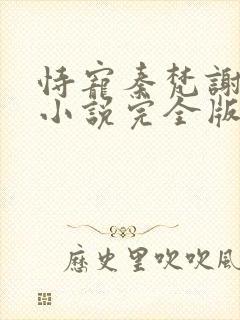 恃寵秦梵謝
小說完全版
歷史里吹吹風